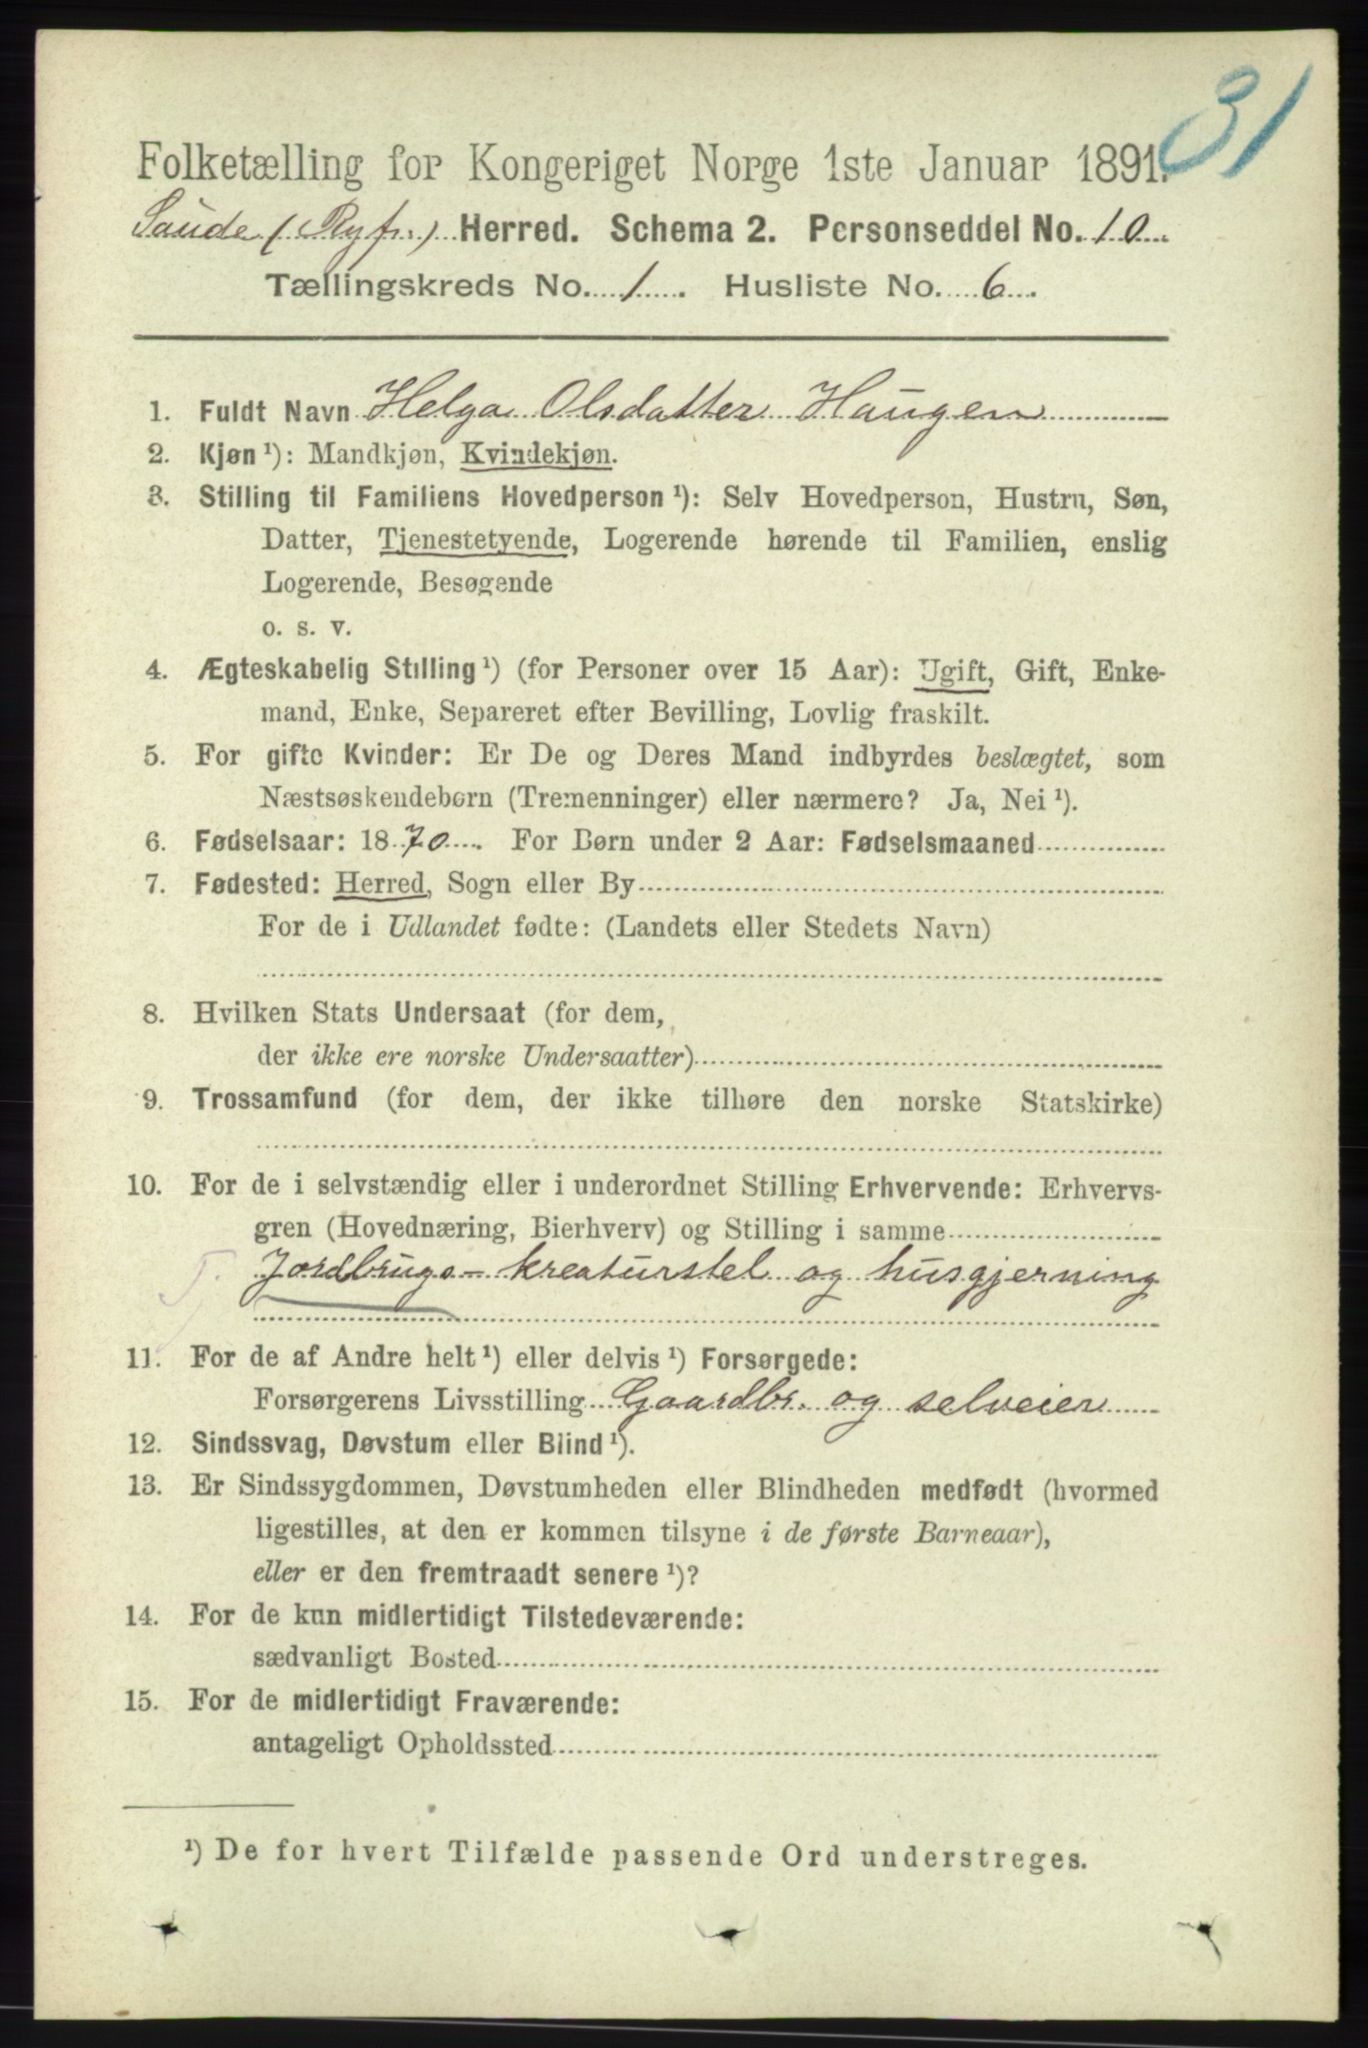 31
Folketælling for Kongeriget Norge 1ste Januar 1891.
Saude (Ryf.) Herred. Schema 2. Personseddel No. 10
Tællingskreds No. 1. Husliste No. 6.
1. Fuldt Navn Helga Olsdatter Haugen
2. Kjøn¹): Mandkjøn, Kvindekjøn.
3. Stilling til Familiens Hovedperson¹): Selv Hovedperson, Hustru, Søn,
Datter, Tjenestetyende, Logerende hørende til Familien, enslig
Logerende, Besøgende
o. s. v.
4. Ægteskabelig Stilling¹) (for Personer over 15 Aar): Ugift, Gift, Enke-
mand, Enke, Separeret efter Bevilling, Lovlig fraskilt.
5. For gifte Kvinder: Er De og Deres Mand indbyrdes beslægtet, som
Næstsøskendebørn (Tremenninger) eller nærmere? Ja, Nei¹).
6. Fødselsaar: 1870. For Børn under 2 Aar: Fødselsmaaned
7. Fødested: Herred, Sogn eller By
For de i Udlandet fødte: (Landets eller Stedets Navn)
8. Hvilken Stats Undersaat (for dem,
der ikke ere norske Undersaatter)
9. Trossamfund (for dem, der ikke tilhøre den norske Statskirke)
10. For de i selvstændig eller i underordnet Stilling Erhvervende: Erhvervs-
gren (Hovednæring, Bierhverv) og Stilling i samme
Jordbrugs- kreaturstel og husgjerning
11. For de af Andre helt¹) eller delvis¹) Forsørgede:
Forsørgerens Livsstilling Gaardbr. og selveier
12. Sindssvag, Døvstum eller Blind¹).
13. Er Sindssygdommen, Døvstumheden eller Blindheden medfødt (hvormed
ligestilles, at den er kommen tilsyne i de første Barneaar),
eller er den fremtraadt senere¹)?
14. For de kun midlertidigt Tilstedeværende:
sædvanligt Bosted
15. For de midlertidigt Fraværende:
antageligt Opholdssted
¹) De for hvert Tilfælde passende Ord understreges.